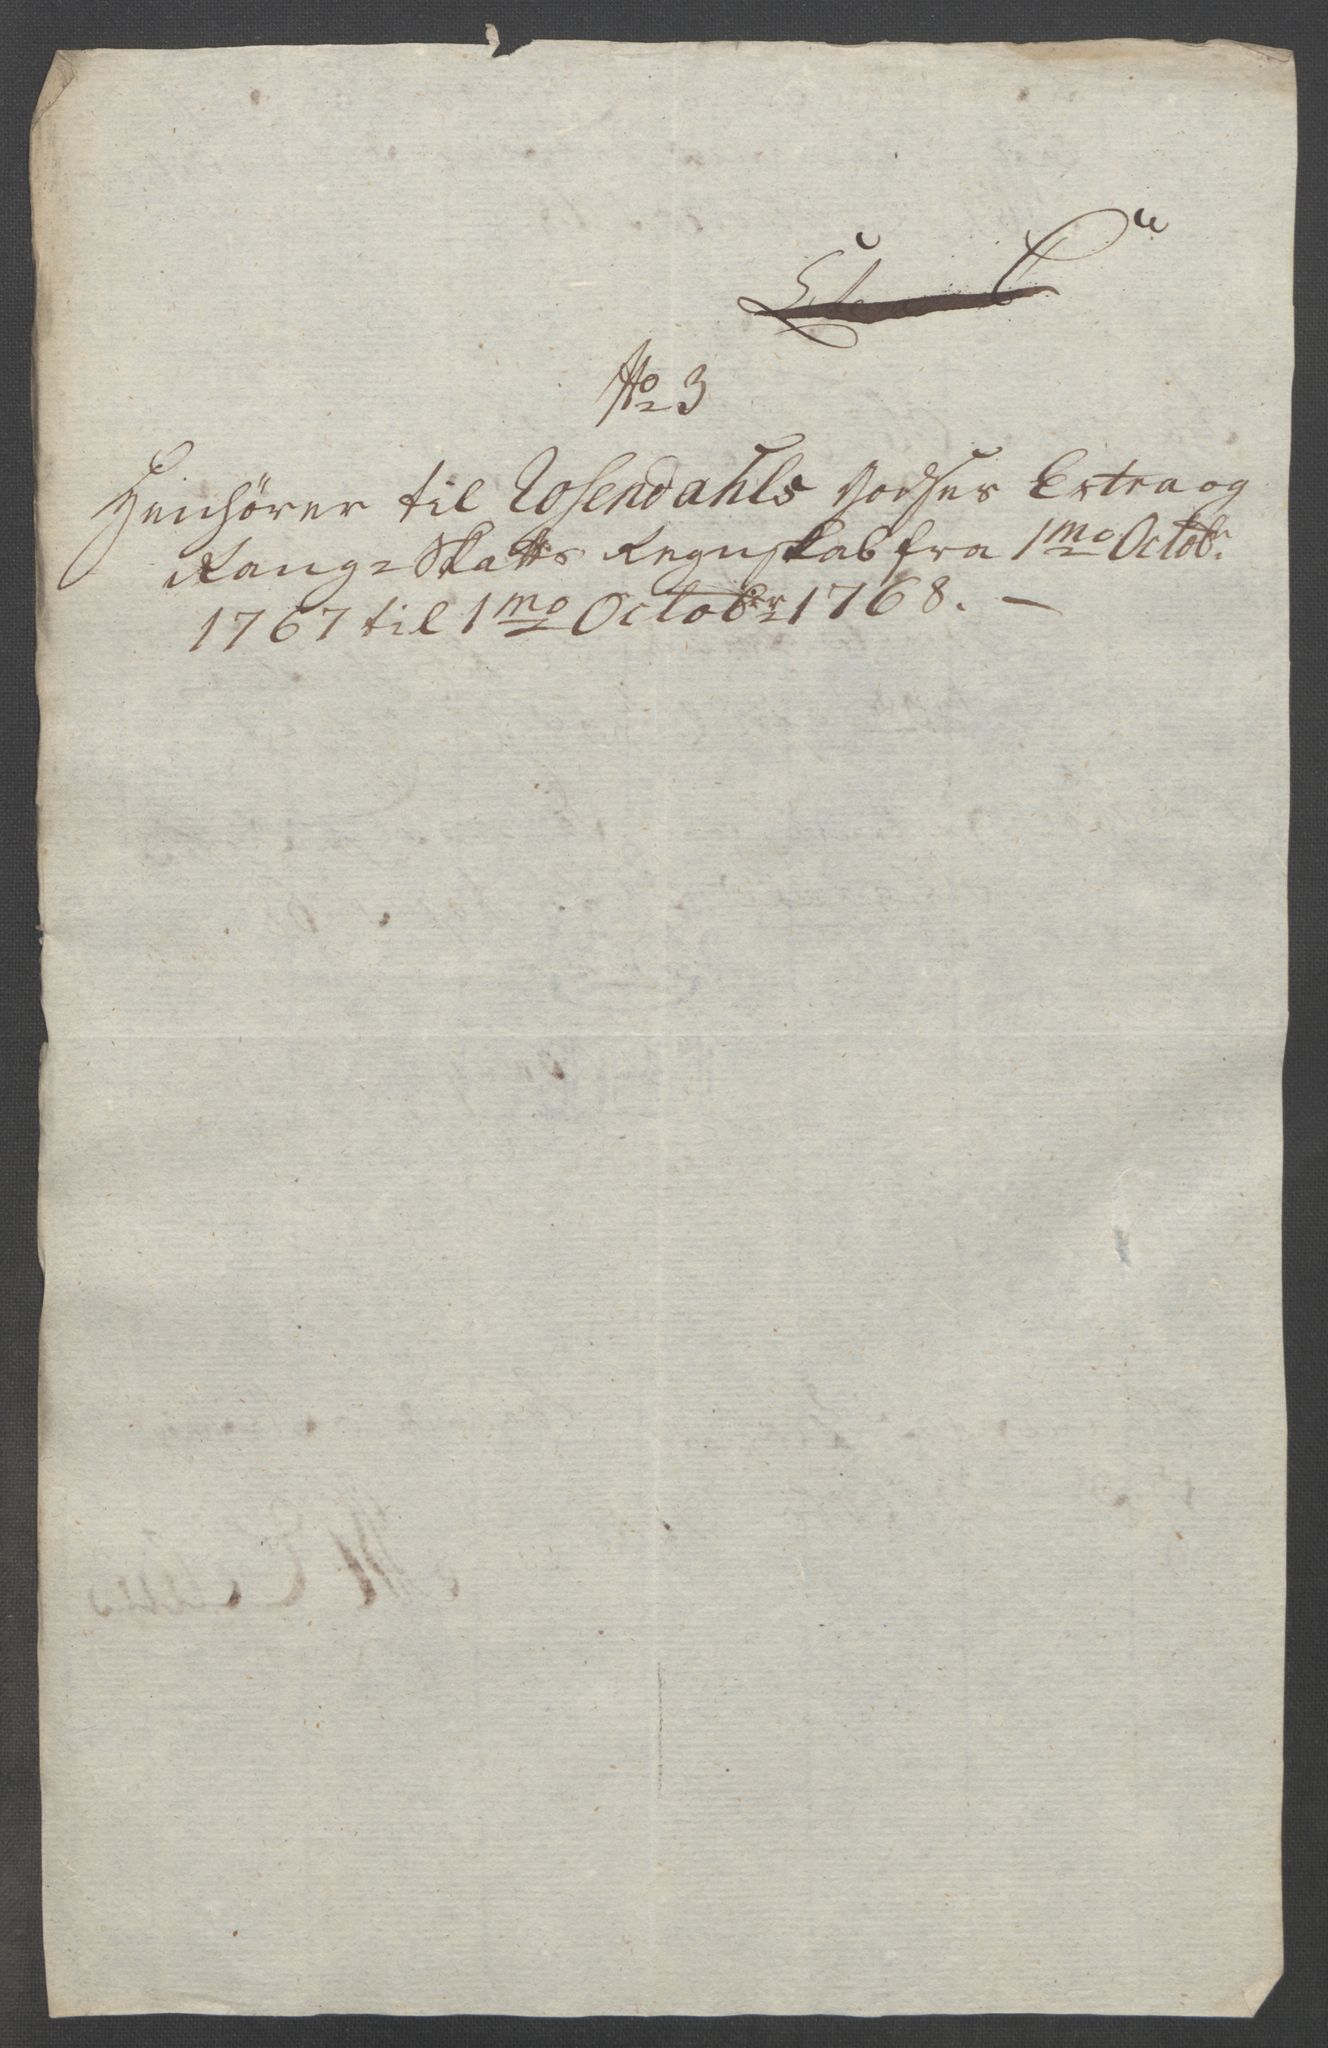 No 3
Henhörer til Rosendahls Godses Extra og
Rang- Skatts Regnskab fra 1mo Octobr.
1767 til 1mo Octobr 1768. —